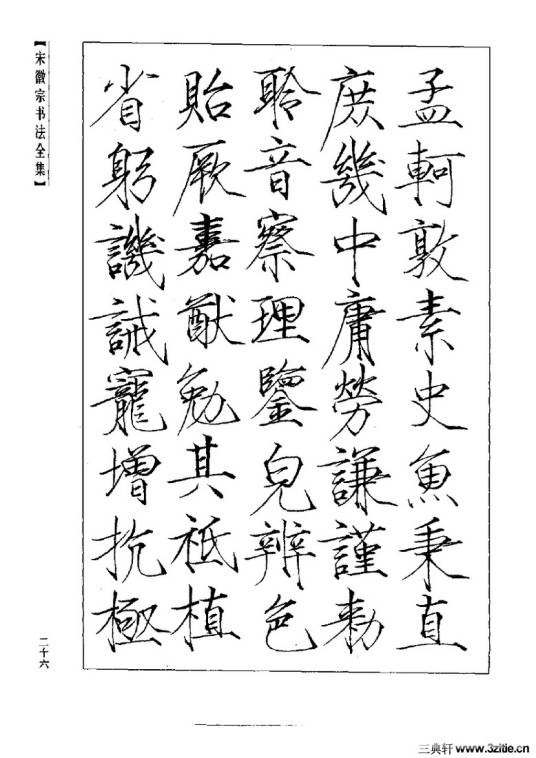 孟軻敦素史魚秉直
庶幾中庸勞謙謹勑
聆音察理鑒皃辨色
貽厥嘉猷勉其祗植
省躬譏誡寵增抗極
【宋徽宗书法全集】
二十六
三典轩 www.3zitie.cn